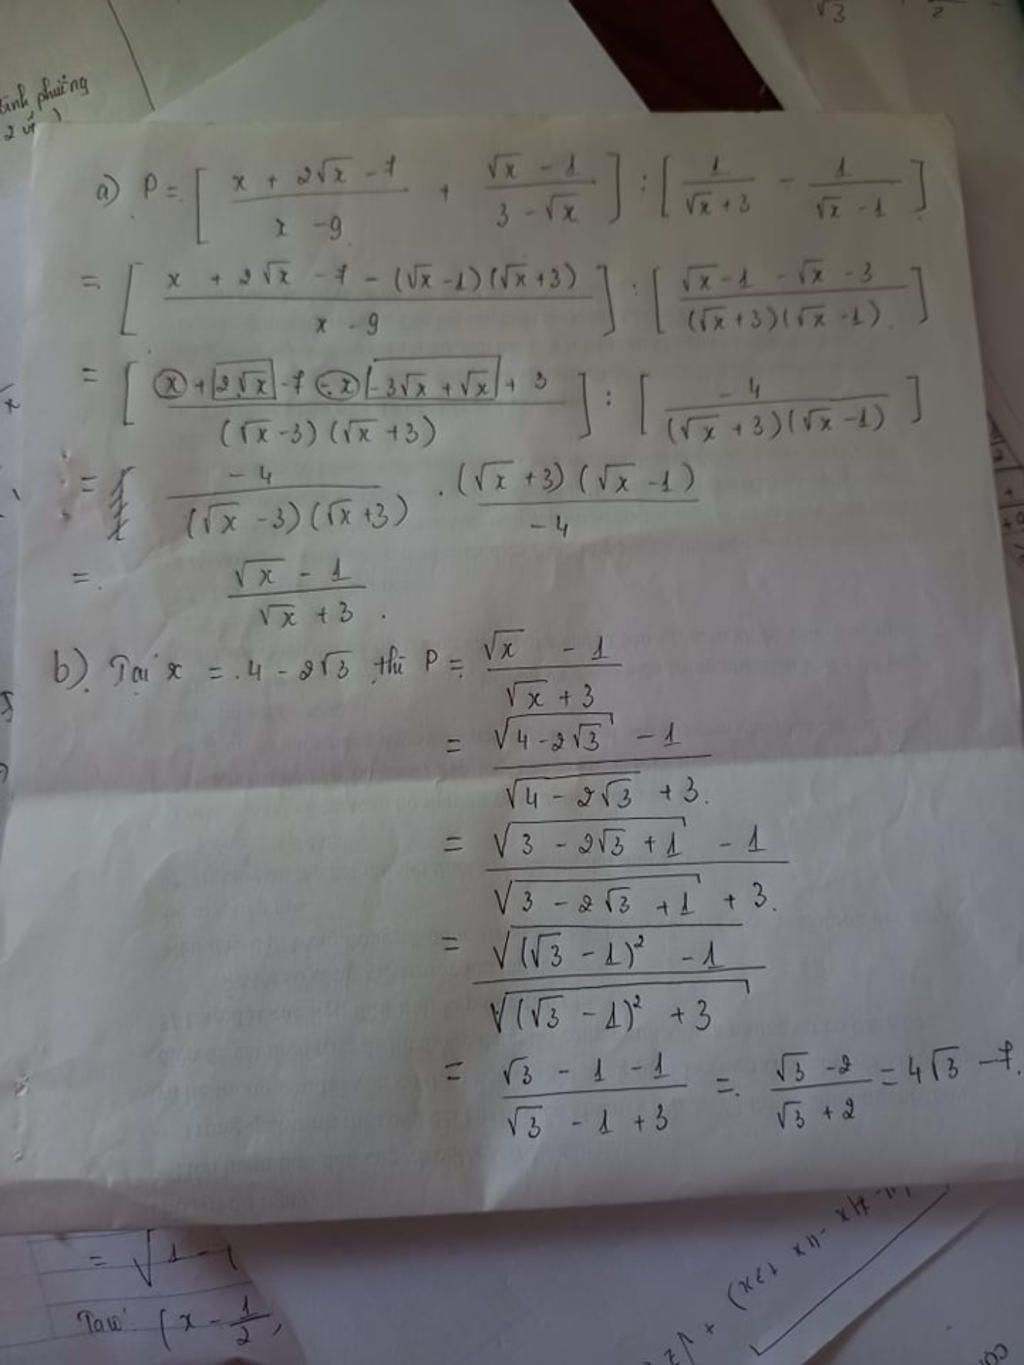 √3 2
phương
2 vế)
a) P = [ (x + 2√x - 7)/(x - 9) + (√x - 1)/(3 - √x) ] : [ 1/(√x + 3) - 1/(√x - 1) ]
= [ (x + 2√x - 7 - (√x - 1)(√x + 3))/(x - 9) ] : [ (√x - 1 - √x - 3)/((√x + 3)(√x - 1)) ]
= [ (x + 2√x - 7 - x - 3√x + √x + 3)/((√x - 3)(√x + 3)) ] : [ -4/((√x + 3)(√x - 1)) ]
= -4/((√x - 3)(√x + 3)) . ((√x + 3)(√x - 1))/-4
= (√x - 1)/(√x + 3).
b). Tại x = 4 - 2√3 thì P = (√x - 1)/(√x + 3)
= (√(4 - 2√3) - 1)/(√(4 - 2√3) + 3).
= (√(3 - 2√3 + 1) - 1)/(√(3 - 2√3 + 1) + 3).
= (√((√3 - 1)² - 1))/(√((√3 - 1)² + 3))
= (√3 - 1 - 1)/(√3 - 1 + 3) = (√3 - 2)/(√3 + 2) = 4√3 - 7.
= √1 -
(x - 1/2)